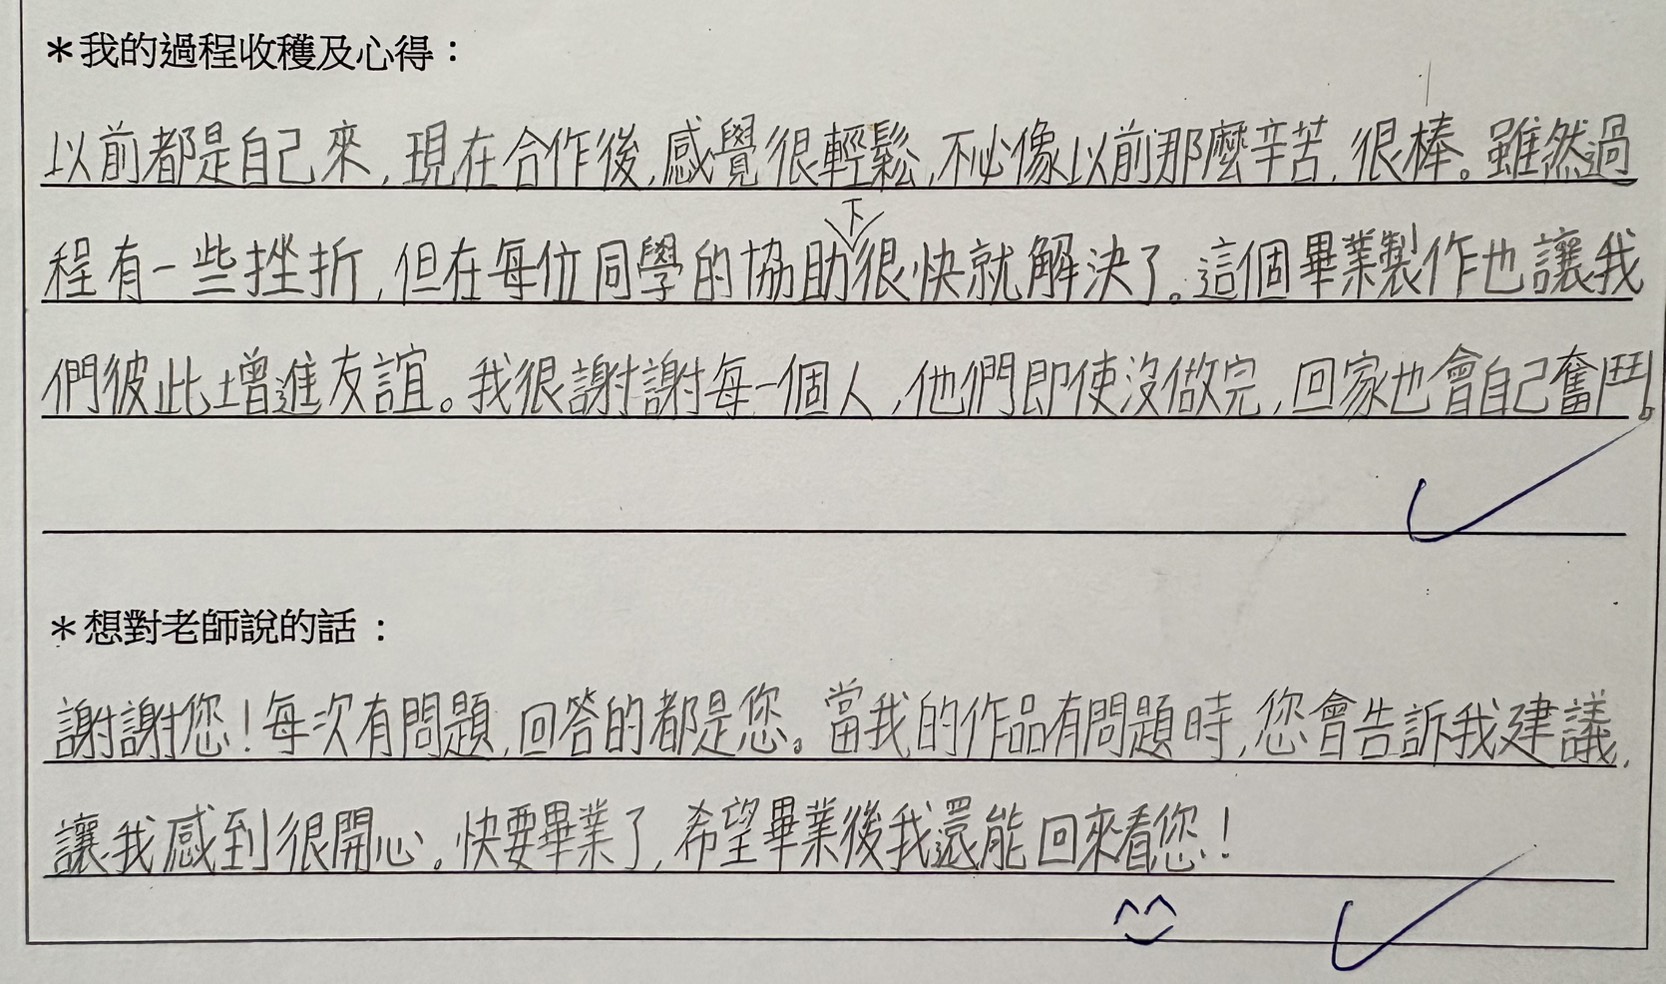 ＊我的過程收穫及心得：
以前都是自己來，現在合作後，感覺很輕鬆，不必像以前那麼辛苦，很棒。雖然過
程有一些挫折，但在每位同學的協助下很快就解決了。這個畢業製作也讓我
們彼此增進友誼。我很謝謝每一個人，他們即使沒做完，回家也會自己奮鬥。
＊想對老師說的話：
謝謝您！每次有問題，回答的都是您。當我的作品有問題時，您會告訴我建議，
讓我感到很開心。快要畢業了，希望畢業後我還能回來看您！